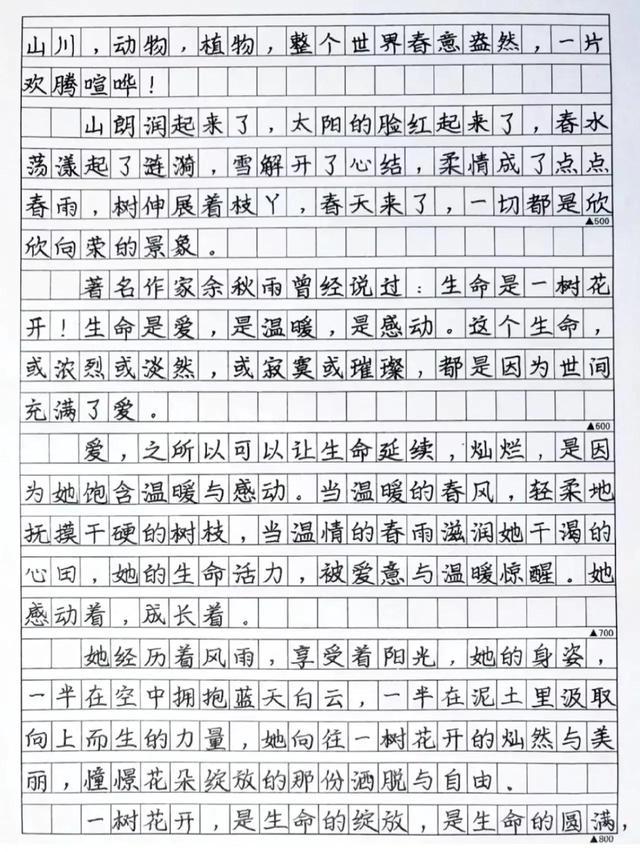 山川，动物，植物，整个世界春意盎然，一片
欢腾喧哗！
山朗润起来了，太阳的脸红起来了，春水
荡漾起了涟漪，雪解开了心结，柔情成了点点
春雨，树伸展着枝丫，春天来了，一切都是欣
▲500
欣向荣的景象。
著名作家余秋雨曾经说过：生命是一树花
开！生命是爱，是温暖，是感动。这个生命，
或浓烈或淡然，或寂寞或璀璨，都是因为世间
充满了爱。
▲600
爱，之所以可以让生命延续，灿烂，是因
为她饱含温暖与感动。当温暖的春风，轻柔地
抚摸干硬的树枝，当温情的春雨滋润她干渴的
心田，她的生命活力，被爱意与温暖惊醒。她
感动着，成长着。
▲700
她经历着风雨，享受着阳光，她的身姿，
一半在空中拥抱蓝天白云，一半在泥土里汲取
向上而生的力量，她向往一树花开的灿然与美
丽，憧憬花朵绽放的那份洒脱与自由。
一树花开，是生命的绽放，是生命的圆满，
▲800